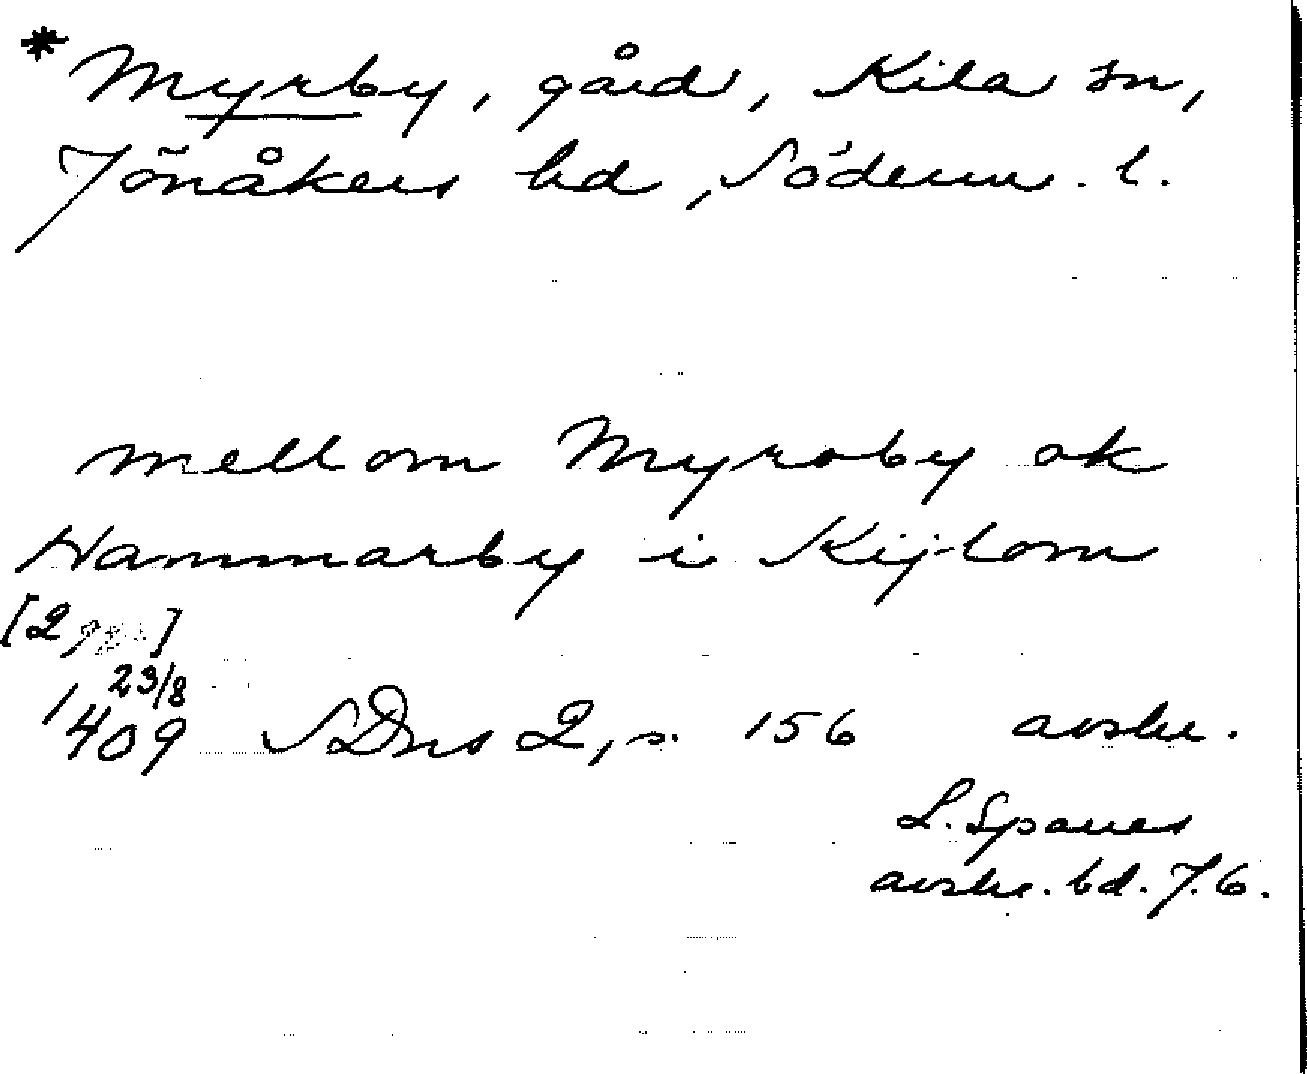 * Myrby, gård, Kila sn,
Jönåkers hd, Söderm. l.
mellom Myroby ok
Hammarby i Kijlom
[2
23/8
1409 SDns 2, s. 156 avskr.
L. Sparres
avskr. bd. 7. 6.